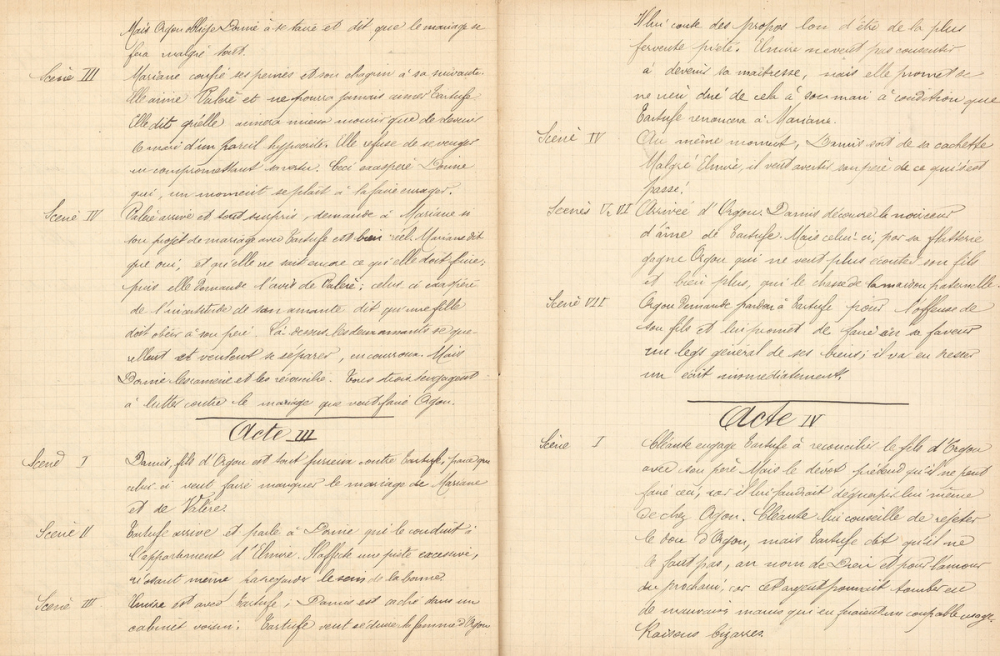 Mais Orgon oblige Dorine à se taire et dit que le mariage se
fera malgré tout.
Scène III Mariane confie ses peines et son chagrin à sa suivante.
Elle aime Valère et ne pourra jamais aimer Tartufe
Elle dit qu'elle aimera mieux mourir que de devenir
d'un pareil hypocrite. Elle refuse de se venger
en compromettant sa vertu. Ceci exaspère Dorine
qui, un moment se plait à la faire enrager.
Scène IV Valère arrive et tout surpris, demande à Mariane si
son projet de mariage avec Tartufe est bien réel. Mariane dit
que oui, et qu'elle ne sait encore ce qu'elle doit faire;
puis elle demande l'avis de Valère; celui ci exaspéré
de l'incertitude de son amante dit qu'une fille
doit obéir à son père. Là dessus, les deux amants se que-
rellent et veulent se séparer, en courroux. Mais
Dorine les ramène et les réconcilie. Tous trois s'engagent
à lutter contre le mariage que veut faire Orgon.
Acte III
Scène I Damis, fils d'Orgon est tout furieux contre Tartufe, parce que
celui ci veut faire manquer le mariage de Mariane
et de Valère.
Scène II Tartufe arrive et parle à Dorine qui le conduit à
l'appartement d'Elmire. Il affecte une piété excessive,
n'osant même regarder le sein de la bonne.
Scène III Elmire est avec Tartufe; Damis est caché dans un
cabinet voisin. Tartufe veut séduire la femme d'Orgon
Il lui conte des propos
fervente piété. Elmire ne veut pas consentir
à devenir sa maîtresse, mais elle promet de
ne rien dire de cela à son mari à condition que
Tartufe renoncera à Mariane.
Scène IV Au même moment, Damis sort de sa cachette
Malgré Elmire, il veut avertir son père de ce qui s'est
passé.
Scènes V, VI Arrivée d'Orgon. Damis découvre la noirceur
d'âme de Tartufe. Mais celui-ci, par sa flatterie
gagne Orgon qui ne veut plus écouter son fils
et bien plus, qui le chasse de la maison paternelle.
Scène VII Orgon demande pardon à Tartufe pour l'offense de
son fils et lui promet de faire en sa faveur
un legs général de ses biens; il va en dresser
un écrit immédiatement.
Acte IV
Scène I Cléante engage Tartufe à réconcilier le fils d'Orgon
avec son père. Mais le dévot prétend qu'il ne peut
faire ceci, car il lui faudrait déguerpir lui même
de chez Orgon. Cléante lui conseille de rejeter
le don d'Orgon, mais Tartufe dit qu'il ne
le fait pas, au nom de Dieu et pour l'amour
du prochain, car cet argent pourrait tomber en
de mauvaises mains qui en feraient un coupable usage.
Raisons bizarres.